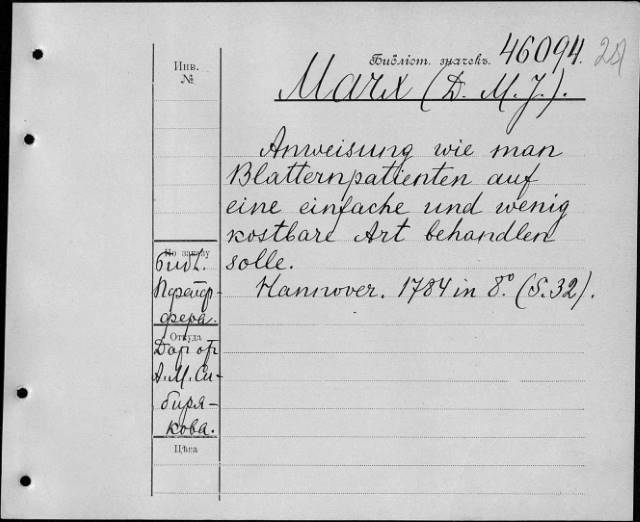 Библіот. значекъ. 46094.
Инв.
№
Marx (D. M. J.).
Anweisung wie man
Blatternpatienten auf
eine einfache und wenig
kostbare Art behandlen
solle.
Hannover. 1784 in 8.° (S. 32).
По заказу
Библ.
фера.
Откуда
Дар от
А. М. Си-
биря-
кова.
Цѣна